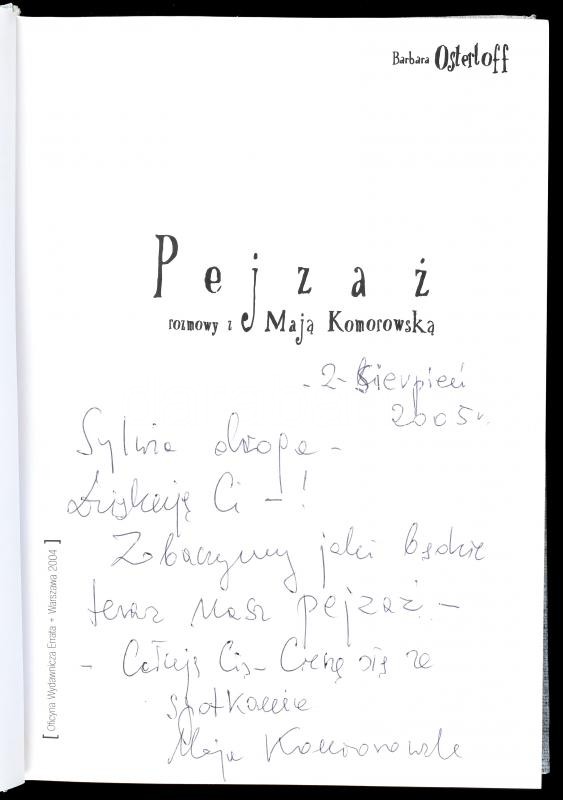 Barbara Osterloff
Pejzaż
rozmowy z Mają Komorowską
- 2 - Sierpień
2005 r.
Sylwia droga -
Dziękuję Ci - !
Zobaczymy jaki będzie
teraz nasz pejzaż -
- Całuję Cię - Cieszę się ze
spotkania
Maja Komorowska
[ Oficyna Wydawnicza Errata + Warszawa 2004 ]